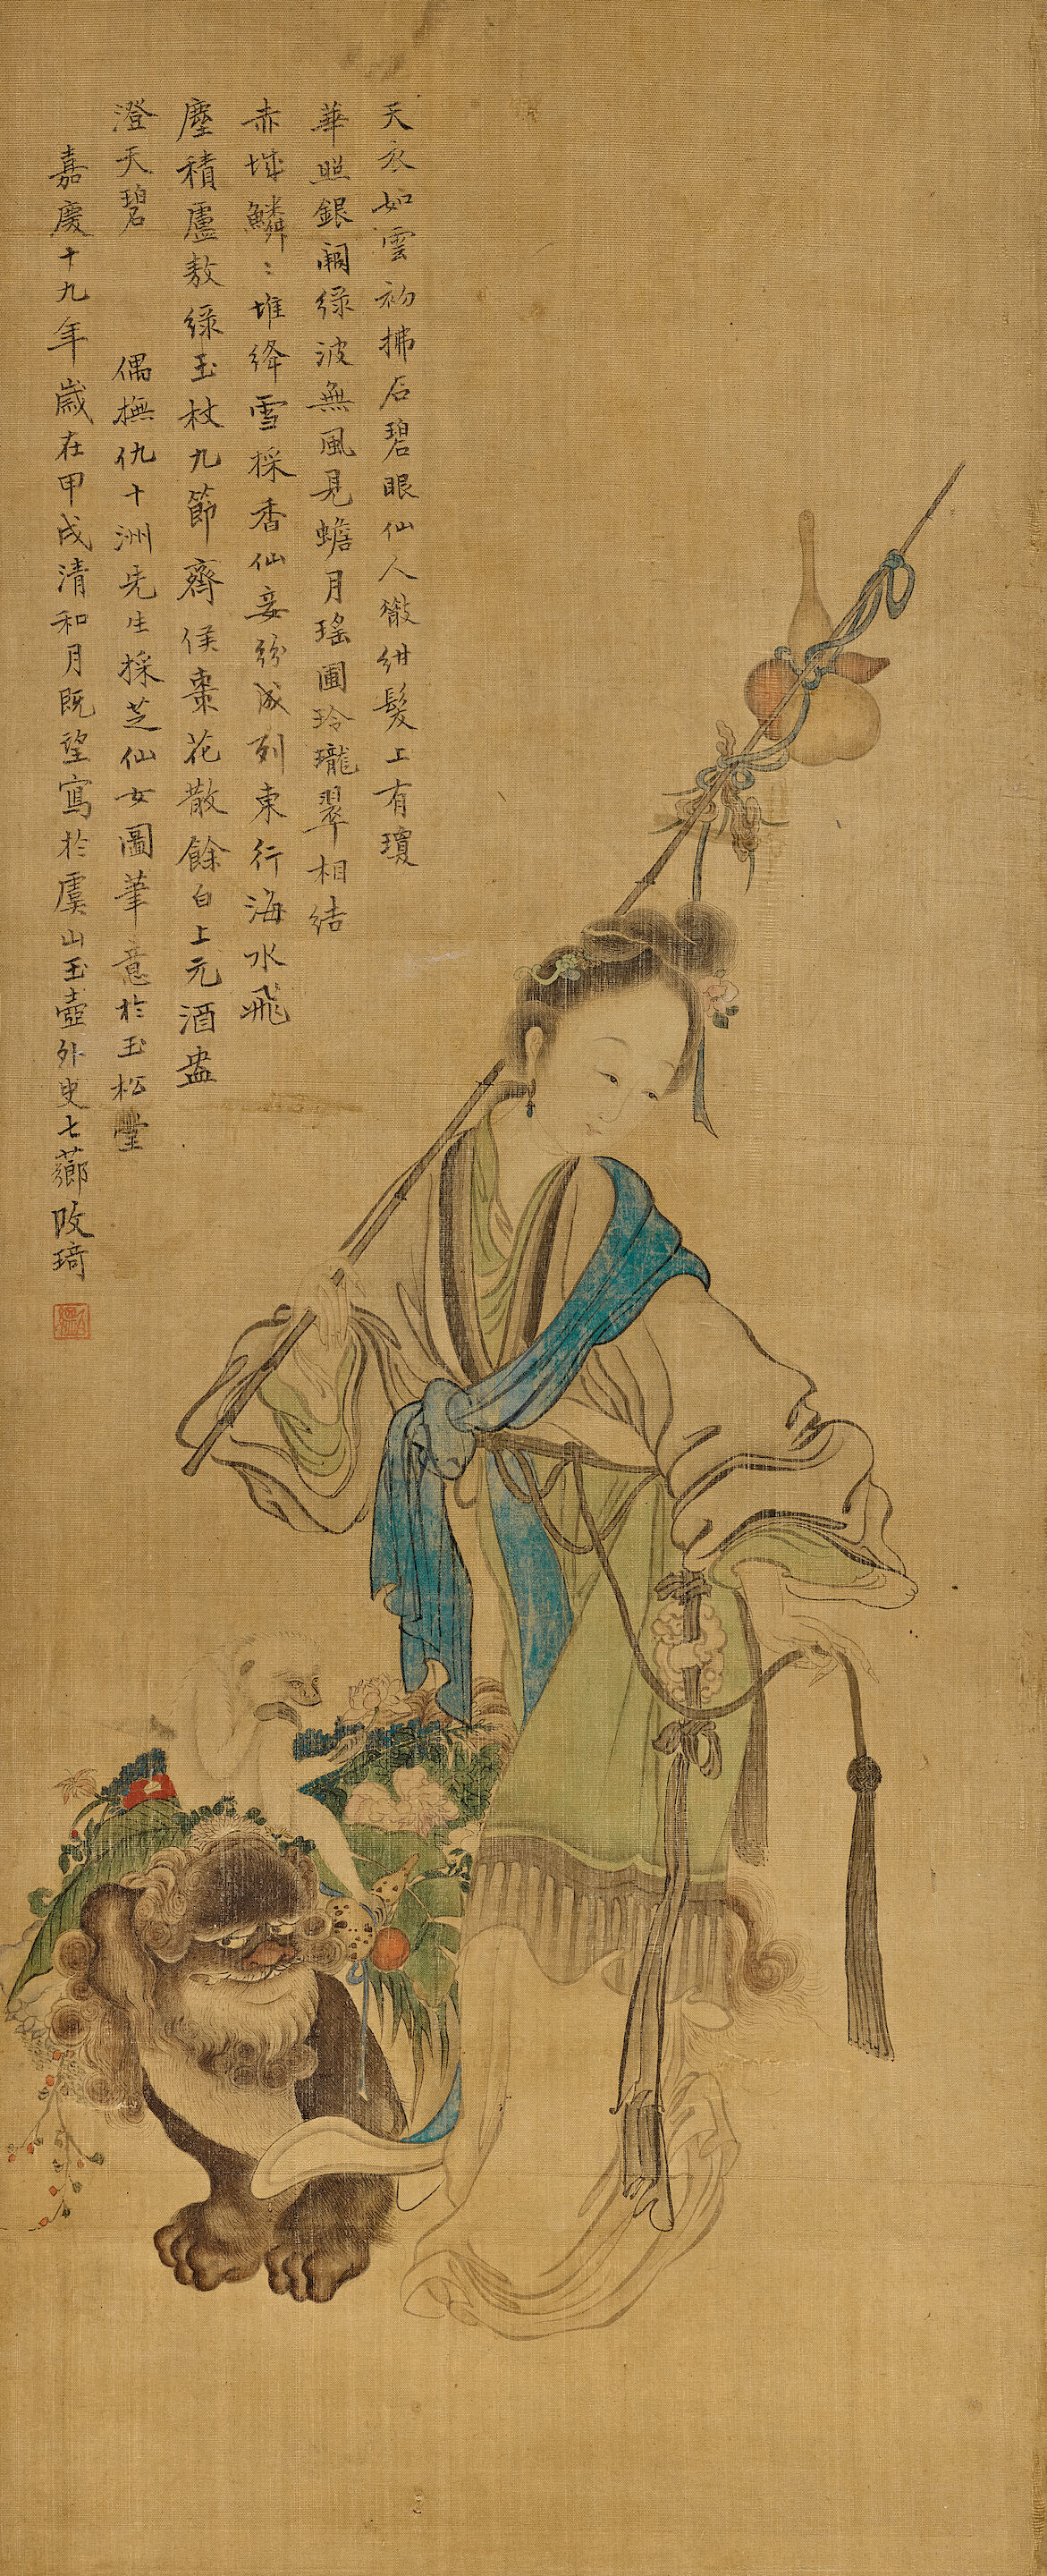 天衣如雲初拂石碧眼仙人徽紺髮上有瓊
華照銀闕綠波無風見蟾月瑤圃玲瓏翠相結
赤城鱗〻堆絳雪採香仙妾紛成列東行海水飛
塵積盧敖綠玉杖九節齊侯棗花散餘白上元酒盎
澄天碧 偶撫仇十洲先生採芝仙女圖筆意於玉松堂
嘉慶十九年歲在甲戌清和月既望寫於虞山玉壺外史七薌改琦